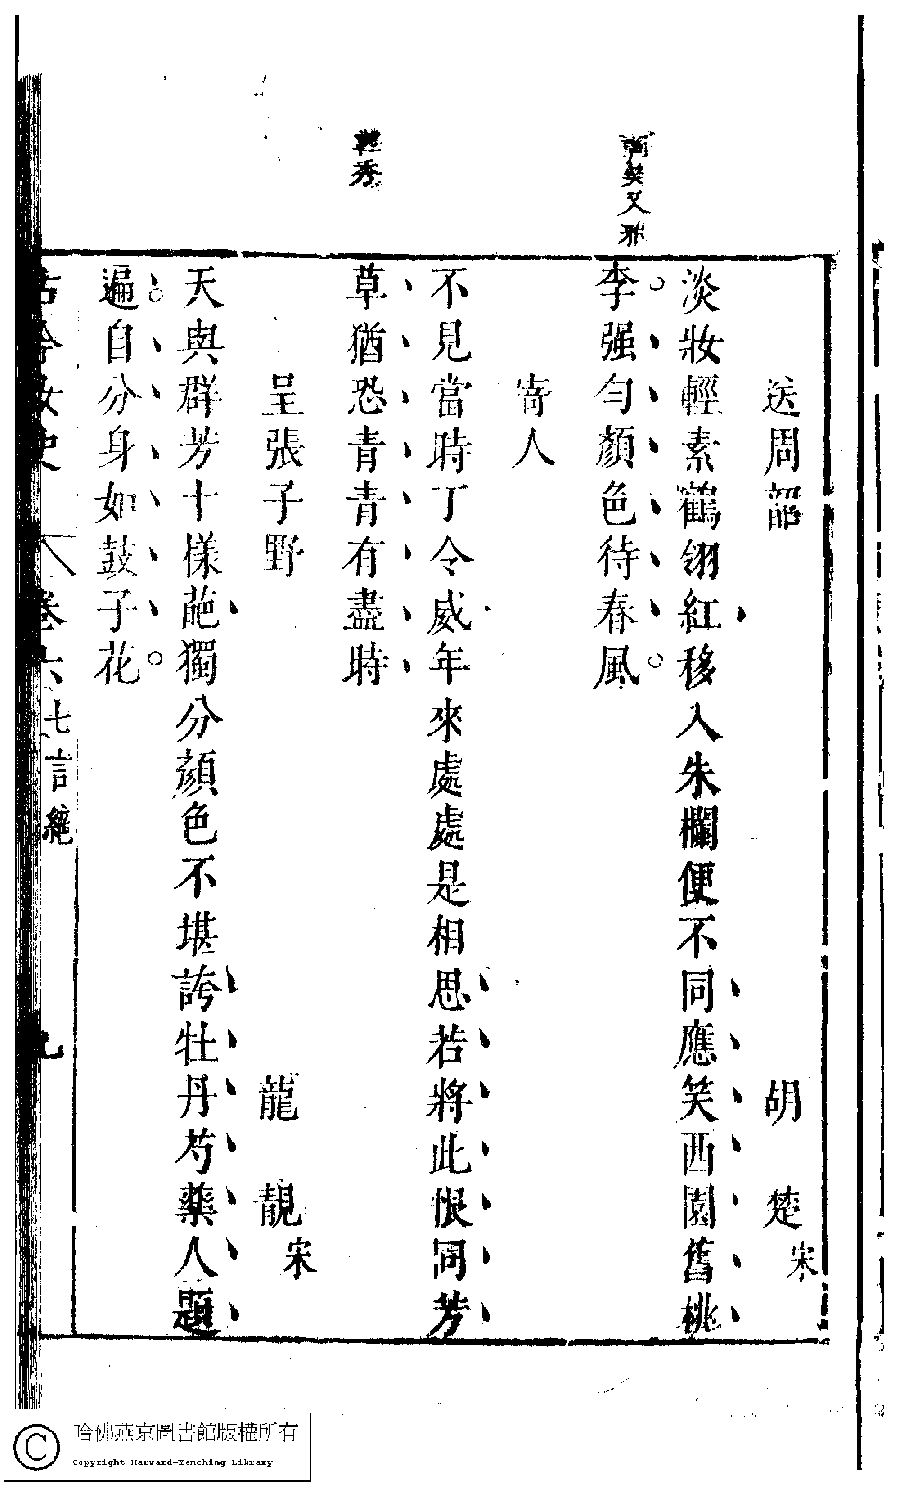 送周韶　胡楚宋
淡妝輕素鶴翎紅移入朱欄便不同應笑西園舊桃
李强勻顏色待春風
寄人
不見當時丁令威年來處處是相思若將此恨同芳
草猶恐青青有盡時
輕秀
呈張子野　龍靚宋
天與群芳十樣葩獨分顏色不堪誇牡丹芍藥人題
遍自分身如鼓子花
古今女史　卷六　七言絕　九
哈佛燕京圖書館版權所有
Copyright Harvard-Yenching Library